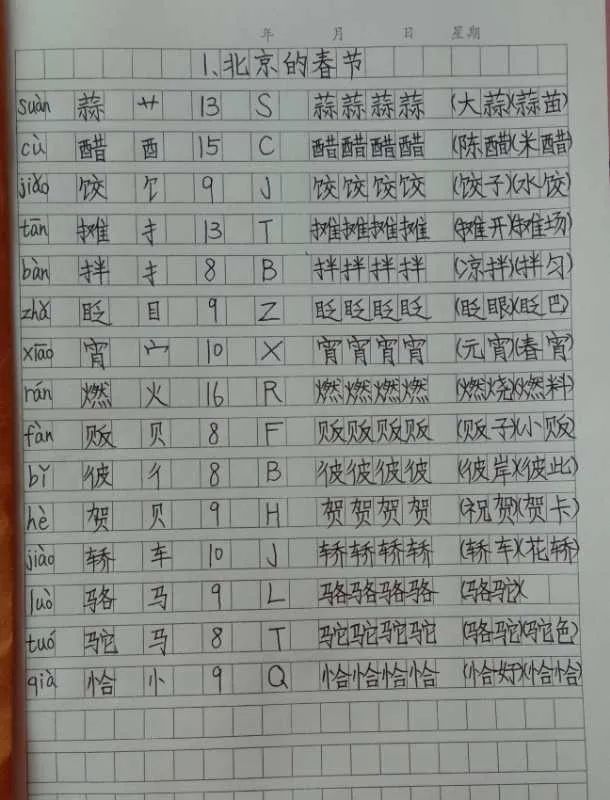 年 月 日 星期
1、北京的春节
suàn 蒜 艹 13 S 蒜蒜蒜蒜 (大蒜)(蒜苗)
cù 醋 酉 15 C 醋醋醋醋 (陈醋)(米醋)
jiǎo 饺 饣 9 J 饺饺饺饺 (饺子)(水饺)
tān 摊 扌 13 T 摊摊摊摊 (摊开)(摊场)
bàn 拌 扌 8 B 拌拌拌拌 (凉拌)(拌匀)
zhǎ 眨 目 9 Z 眨眨眨眨 (眨眼)(眨巴)
xiāo 宵 宀 10 X 宵宵宵宵 (元宵)(春宵)
rán 燃 火 16 R 燃燃燃燃 (燃烧)(燃料)
fàn 贩 贝 8 F 贩贩贩贩 (贩子)(小贩)
bǐ 彼 彳 8 B 彼彼彼彼 (彼岸)(彼此)
hè 贺 贝 9 H 贺贺贺贺 (祝贺)(贺卡)
jiào 轿 车 10 J 轿轿轿轿 (轿车)(花轿)
luò 骆 马 9 L 骆骆骆骆 (骆驼)(
tuó 驼 马 8 T 驼驼驼驼 (骆驼)(驼色)
qià 恰 忄 9 Q 恰恰恰恰 (恰好)(恰恰)